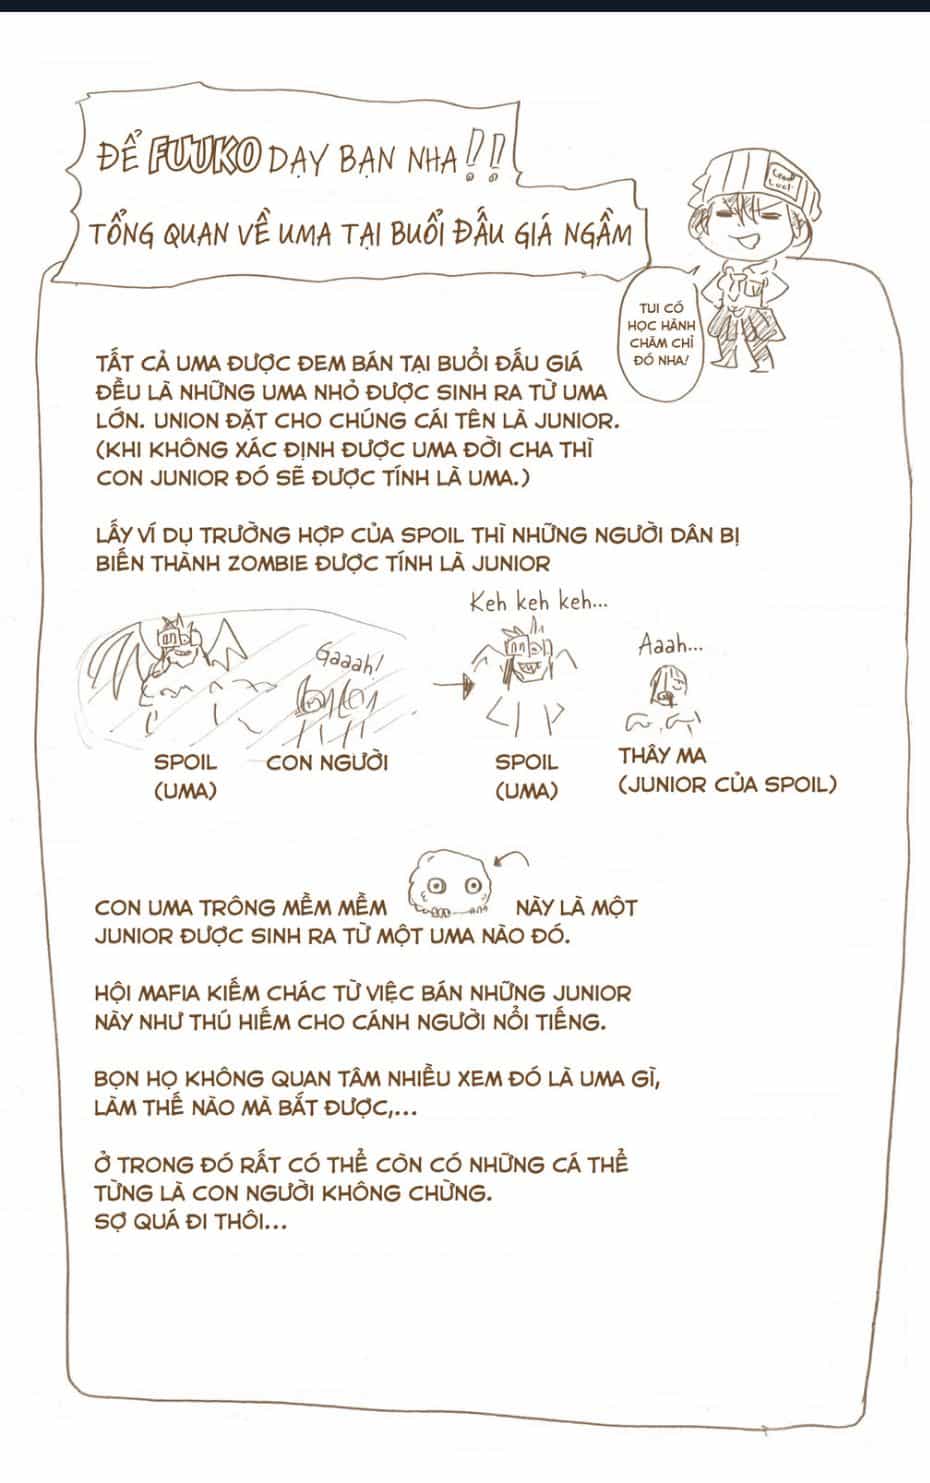 ĐỂ FUUKO DẠY BẠN NHA!!
TỔNG QUAN VỀ UMA TẠI BUỔI ĐẤU GIÁ NGẦM
Good
Luck
TUI CÓ
HỌC HÀNH
CHĂM CHỈ
ĐÓ NHA!
TẤT CẢ UMA ĐƯỢC ĐEM BÁN TẠI BUỔI ĐẤU GIÁ
ĐỀU LÀ NHỮNG UMA NHỎ ĐƯỢC SINH RA TỪ UMA
LỚN. UNION ĐẶT CHO CHÚNG CÁI TÊN LÀ JUNIOR.
(KHI KHÔNG XÁC ĐỊNH ĐƯỢC UMA ĐỜI CHA THÌ
CON JUNIOR ĐÓ SẼ ĐƯỢC TÍNH LÀ UMA.)
LẤY VÍ DỤ TRƯỜNG HỢP CỦA SPOIL THÌ NHỮNG NGƯỜI DÂN BỊ
BIẾN THÀNH ZOMBIE ĐƯỢC TÍNH LÀ JUNIOR
Gaaah!
Keh keh keh...
Aaah...
SPOIL
(UMA)
CON NGƯỜI
SPOIL
(UMA)
THÂY MA
(JUNIOR CỦA SPOIL)
CON UMA TRÔNG MỀM MỀM NÀY LÀ MỘT
JUNIOR ĐƯỢC SINH RA TỪ MỘT UMA NÀO ĐÓ.
HỘI MAFIA KIẾM CHÁC TỪ VIỆC BÁN NHỮNG JUNIOR
NÀY NHƯ THÚ HIẾM CHO CÁNH NGƯỜI NỔI TIẾNG.
BỌN HỌ KHÔNG QUAN TÂM NHIỀU XEM ĐÓ LÀ UMA GÌ,
LÀM THẾ NÀO MÀ BẮT ĐƯỢC,...
Ở TRONG ĐÓ RẤT CÓ THỂ CÒN CÓ NHỮNG CÁ THỂ
TỪNG LÀ CON NGƯỜI KHÔNG CHỪNG.
SỢ QUÁ ĐI THÔI...